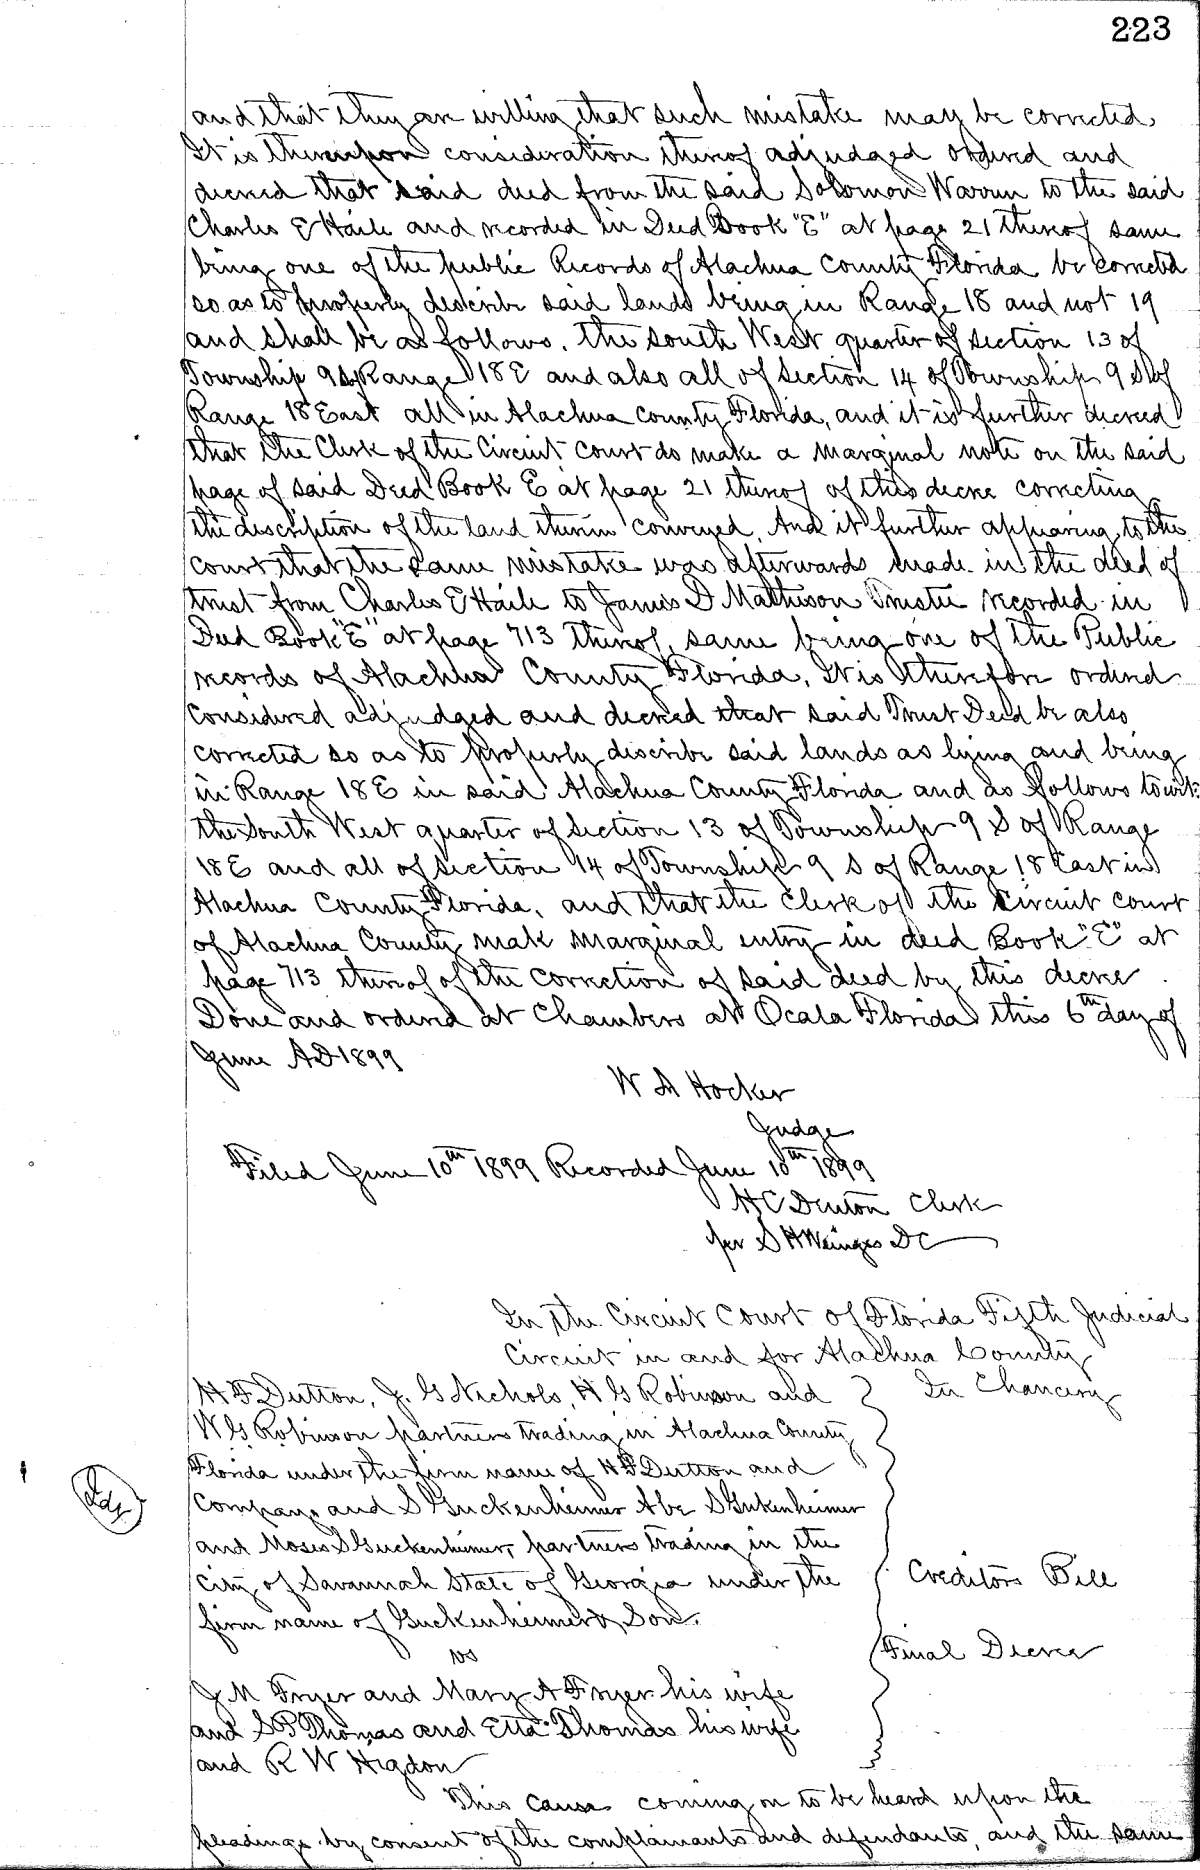 223
and that they are willing that such mistake may be corrected.
It is thereupon consideration thereof adjudged ordered and
decreed that said deed from the said Solomon Warren to the said
Charles E Haile and recorded in Deed Book "E" at page 21 thereof same
being one of the public Records of Alachua County Florida be corrected
so as to properly describe said lands being in Range 18 and not 19
and shall be as follows. The South West quarter of Section 13 of
Township 9 S, Range 18 E and also all of Section 14 of Township 9 S of
Range 18 East all in Alachua County Florida, and it is further decreed
that the Clerk of the Circuit Court do make a marginal note on the said
page of said Deed Book E at page 21 thereof of this decree correcting
the description of the land therein conveyed. And it further appearing to the
court that the same mistake was afterwards made in the deed of
trust from Charles E Haile to James D Matheson Trustee recorded in
Deed Book "E" at page 713 thereof, same being one of the Public
records of Alachua County Florida, It is therefore ordered
considered adjudged and decreed that said Trust Deed be also
corrected so as to properly describe said lands as lying and being
in Range 18 E in said Alachua County Florida and as follows towit:
the South West quarter of Section 13 of Township 9 S of Range
18 E and all of Section 14 of Township 9 S of Range 18 East in
Alachua County Florida, and that the Clerk of the Circuit Court
of Alachua County make marginal entry in deed Book "E" at
page 713 thereof of the correction of said deed by this decree.
Done and ordered at Chambers at Ocala Florida this 6th day of
June AD 1899
W A Hocker
Judge
Filed June 10th 1899 Recorded June 10th 1899
H C Denton Clerk
per S H Wienges DC
In the Circuit Court of Florida Fifth Judicial
Circuit in and for Alachua County
H F Dutton, J. G Nichols, H G Robinson and
In Chancery
W G Robinson partners trading in Alachua County
Florida under the firm name of H F Dutton and
Company and S Guckenheimer Abe S Gukenheimer
and Moses S Guckenheimer, partners trading in the
City of Savannah State of Georgia under the
Creditors Bill
firm name of Guckenheimer & Son.
Final Decree
vs
J M Fryer and Mary A Fryer his wife
and S P Thomas and Etta Thomas his wife
and R W Higdon
This cause coming on to be heard upon the
pleadings by consent of the complainants and defendants, and the same